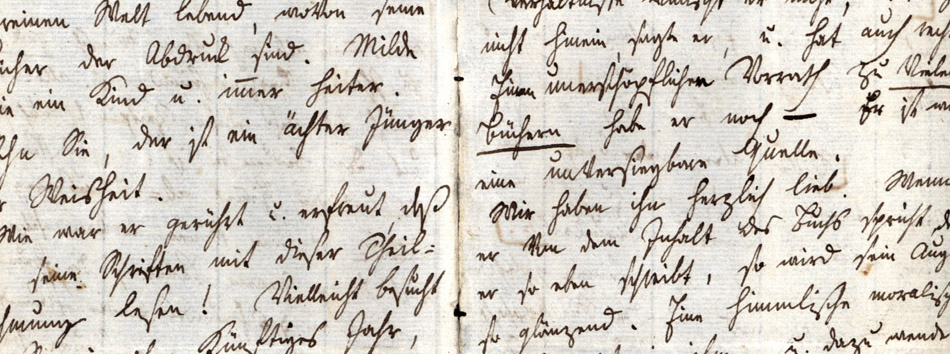 reinen Welt lebend, wovon seine
der Abdruck sind. Milde
ein Kind u. immer heiter.
Sie, der ist ein ächter Jünger
Weisheit.
Wie war er gerührt u. erfreut daß
seine Schriften mit dieser Theil-
lesen! Vielleicht besucht
Künftiges Jahr,
nicht hinein, sagte er, u. hat auch
Einen unerschöpflichen Vorrath zu
Büchern habe er noch — Er ist
eine unversiegbare Quelle.
Wir haben ihn herzlich lieb. Wenn
er von dem Inhalt des Buchs spricht
er so eben schreibt, so wird sein
so glänzend. Eine himmlische
u. dazu